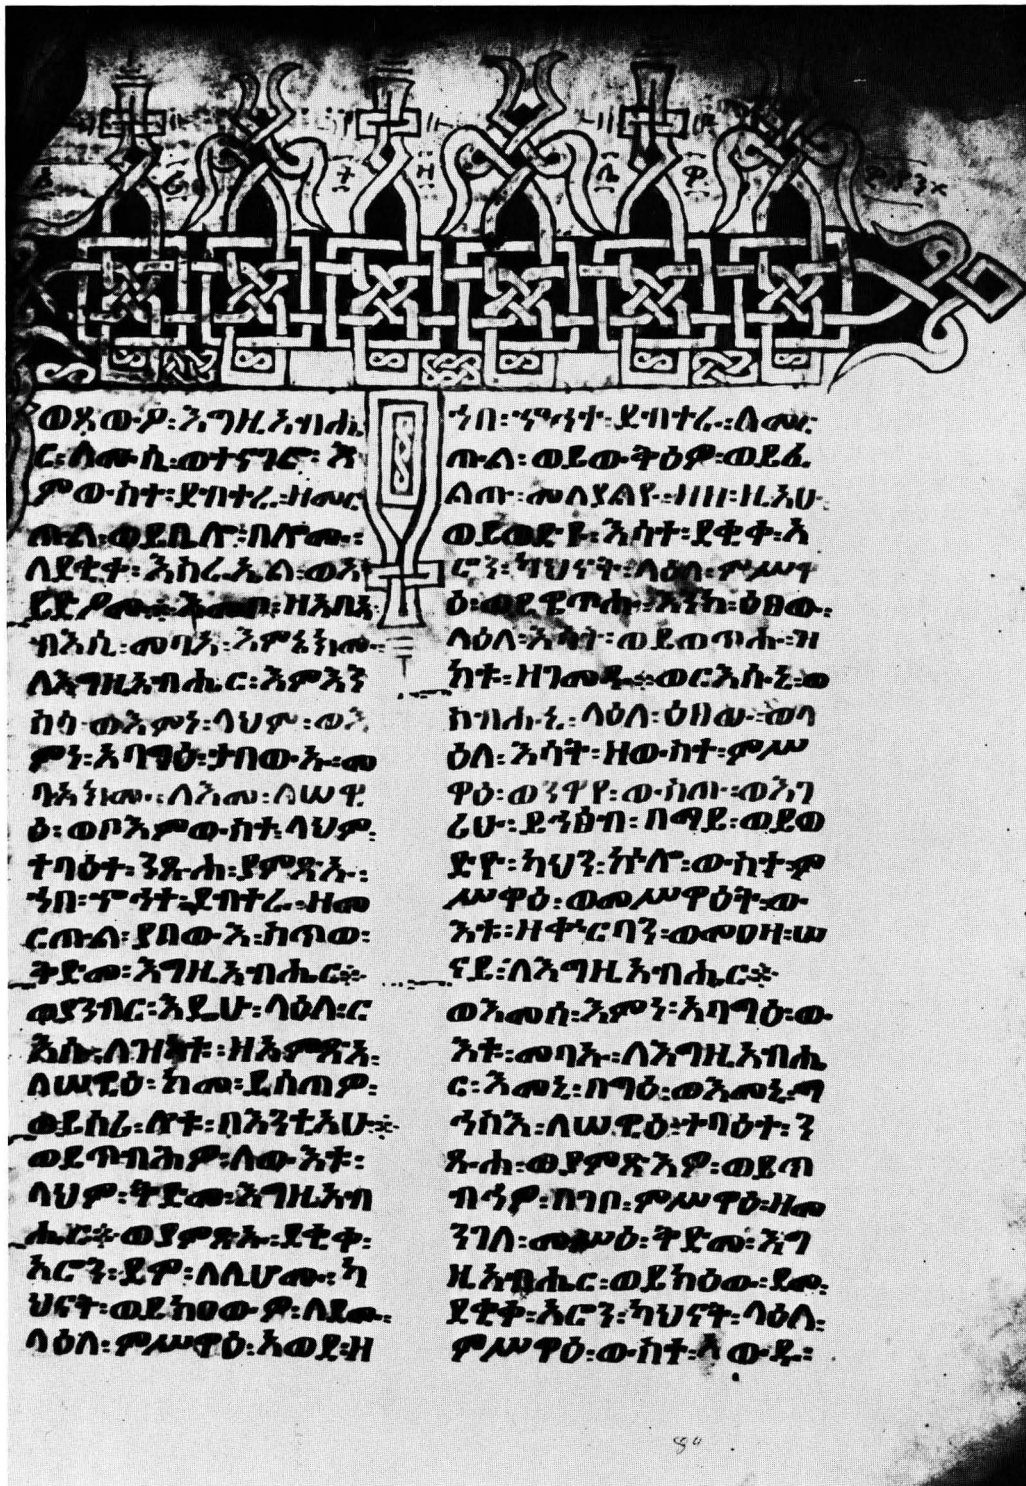 ወጸውዖ፡እግዚአብሔ
ር፡ለሙሴ፡ወተናገሮ፡እ
ምውስተ፡ደብተራ፡ዘመር
ጡል፡ወይቤሎ፡በሎሙ፡
ለደቂቀ፡እስራኤል፡ወአ
ይድዖሙ፡እመቦ፡ዘአብአ
ብእሲ፡መባአ፡እምኔክሙ፡
ለእግዚአብሔር፡እምእን
ስሳ፡ወእምነ፡ላህም፡ወእ
ምነ፡አባግዕ፡ታበውኡ፡መ
ባአክሙ፡ለእመ፡ለሠዊ
ዕ፡ወቦእምውስተ፡ላህም፡
ተባዕተ፡ንጹሐ፡ያምጽኡ፡
ኀበ፡ኆኅተ፡ደብተራ፡ዘመ
ርጡል፡ያበውእ፡ከጥወ፡
ቅድመ፡እግዚአብሔር፨
ወያንብር፡እዴሁ፡ላዕለ፡ር
እሱ፡ለዝክቱ፡ዘአምጽአ፡
ለሠዊዕ፡ከመ፡ይስጠም፡
ወይስሪ፡ሎቱ፡በእንቲአሁ፨
ወይጥብሕዎ፡ለውእቱ፡
ላህም፡ቅድመ፡እግዚአብ
ሔር፨ወያምጽኡ፡ደቂቀ፡
አሮን፡ደሞ፡ለሊሆሙ፡ካ
ህናት፡ወይክዐውዎ፡ለደሙ፡
ላዕለ፡ምሥዋዕ፡አውደ፡ዘ
ኀበ፡ኆኅተ፡ደብተራ፡ለመር
ጡል፡ወይውትዕዎ፡ወይፌ
ልጡ፡መለያልየ፡ዘዘ፡ዚአሁ
ወይወድዩ፡እሳተ፡ደቂቀ፡አ
ሮን፡ካህናት፡ላዕለ፡ምሥዋ
ዕ፡ወይዌጥሑ፡እንከ፡ዕፀው፡
ላዕለ፡እሳት፡ወይወጥሑ፡ዝ
ክቱ፡ዘገመዱ፨ወርእሱኒ፡ወ
ከብሐኒ፡ላዕለ፡ዕፀው፡ወላ
ዕለ፡እሳት፡ዘውስተ፡ምሥ
ዋዕ፡ወንዋየ፡ውስጡ፡ወእገ
ሪሁ፡ይኀፅብ፡በማይ፡ወይወ
ድዮ፡ካህን፡ኵሎ፡ውስተ፡ም
ሥዋዕ፡ወመሥዋዕት፡ው
እቱ፡ዘቍርባን፡ወመዐዛ፡ሠ
ናይ፡ለእግዚአብሔር፨
ወእመሰ፡እምነ፡አባግዕ፡ው
እቱ፡መባኡ፡ለእግዚአብሔ
ር፡እመኒ፡በግዕ፡ወእመኒ፡ጣ
ኅስአ፡ለሠዊዕ፡ተባዕተ፡ን
ጹሐ፡ወያምጽእዎ፡ወይጥ
ብኅዎ፡በገቦ፡ምሥዋዕ፡ዘመ
ንገለ፡መሥዕ፡ቅድመ፡እግ
ዚአብሔር፡ወይክዕው፡ደሞ፡
ደቂቀ፡አሮን፡ካህናት፡ላዕለ፡
ምሥዋዕ፡ውስተ፡አውዱ፡